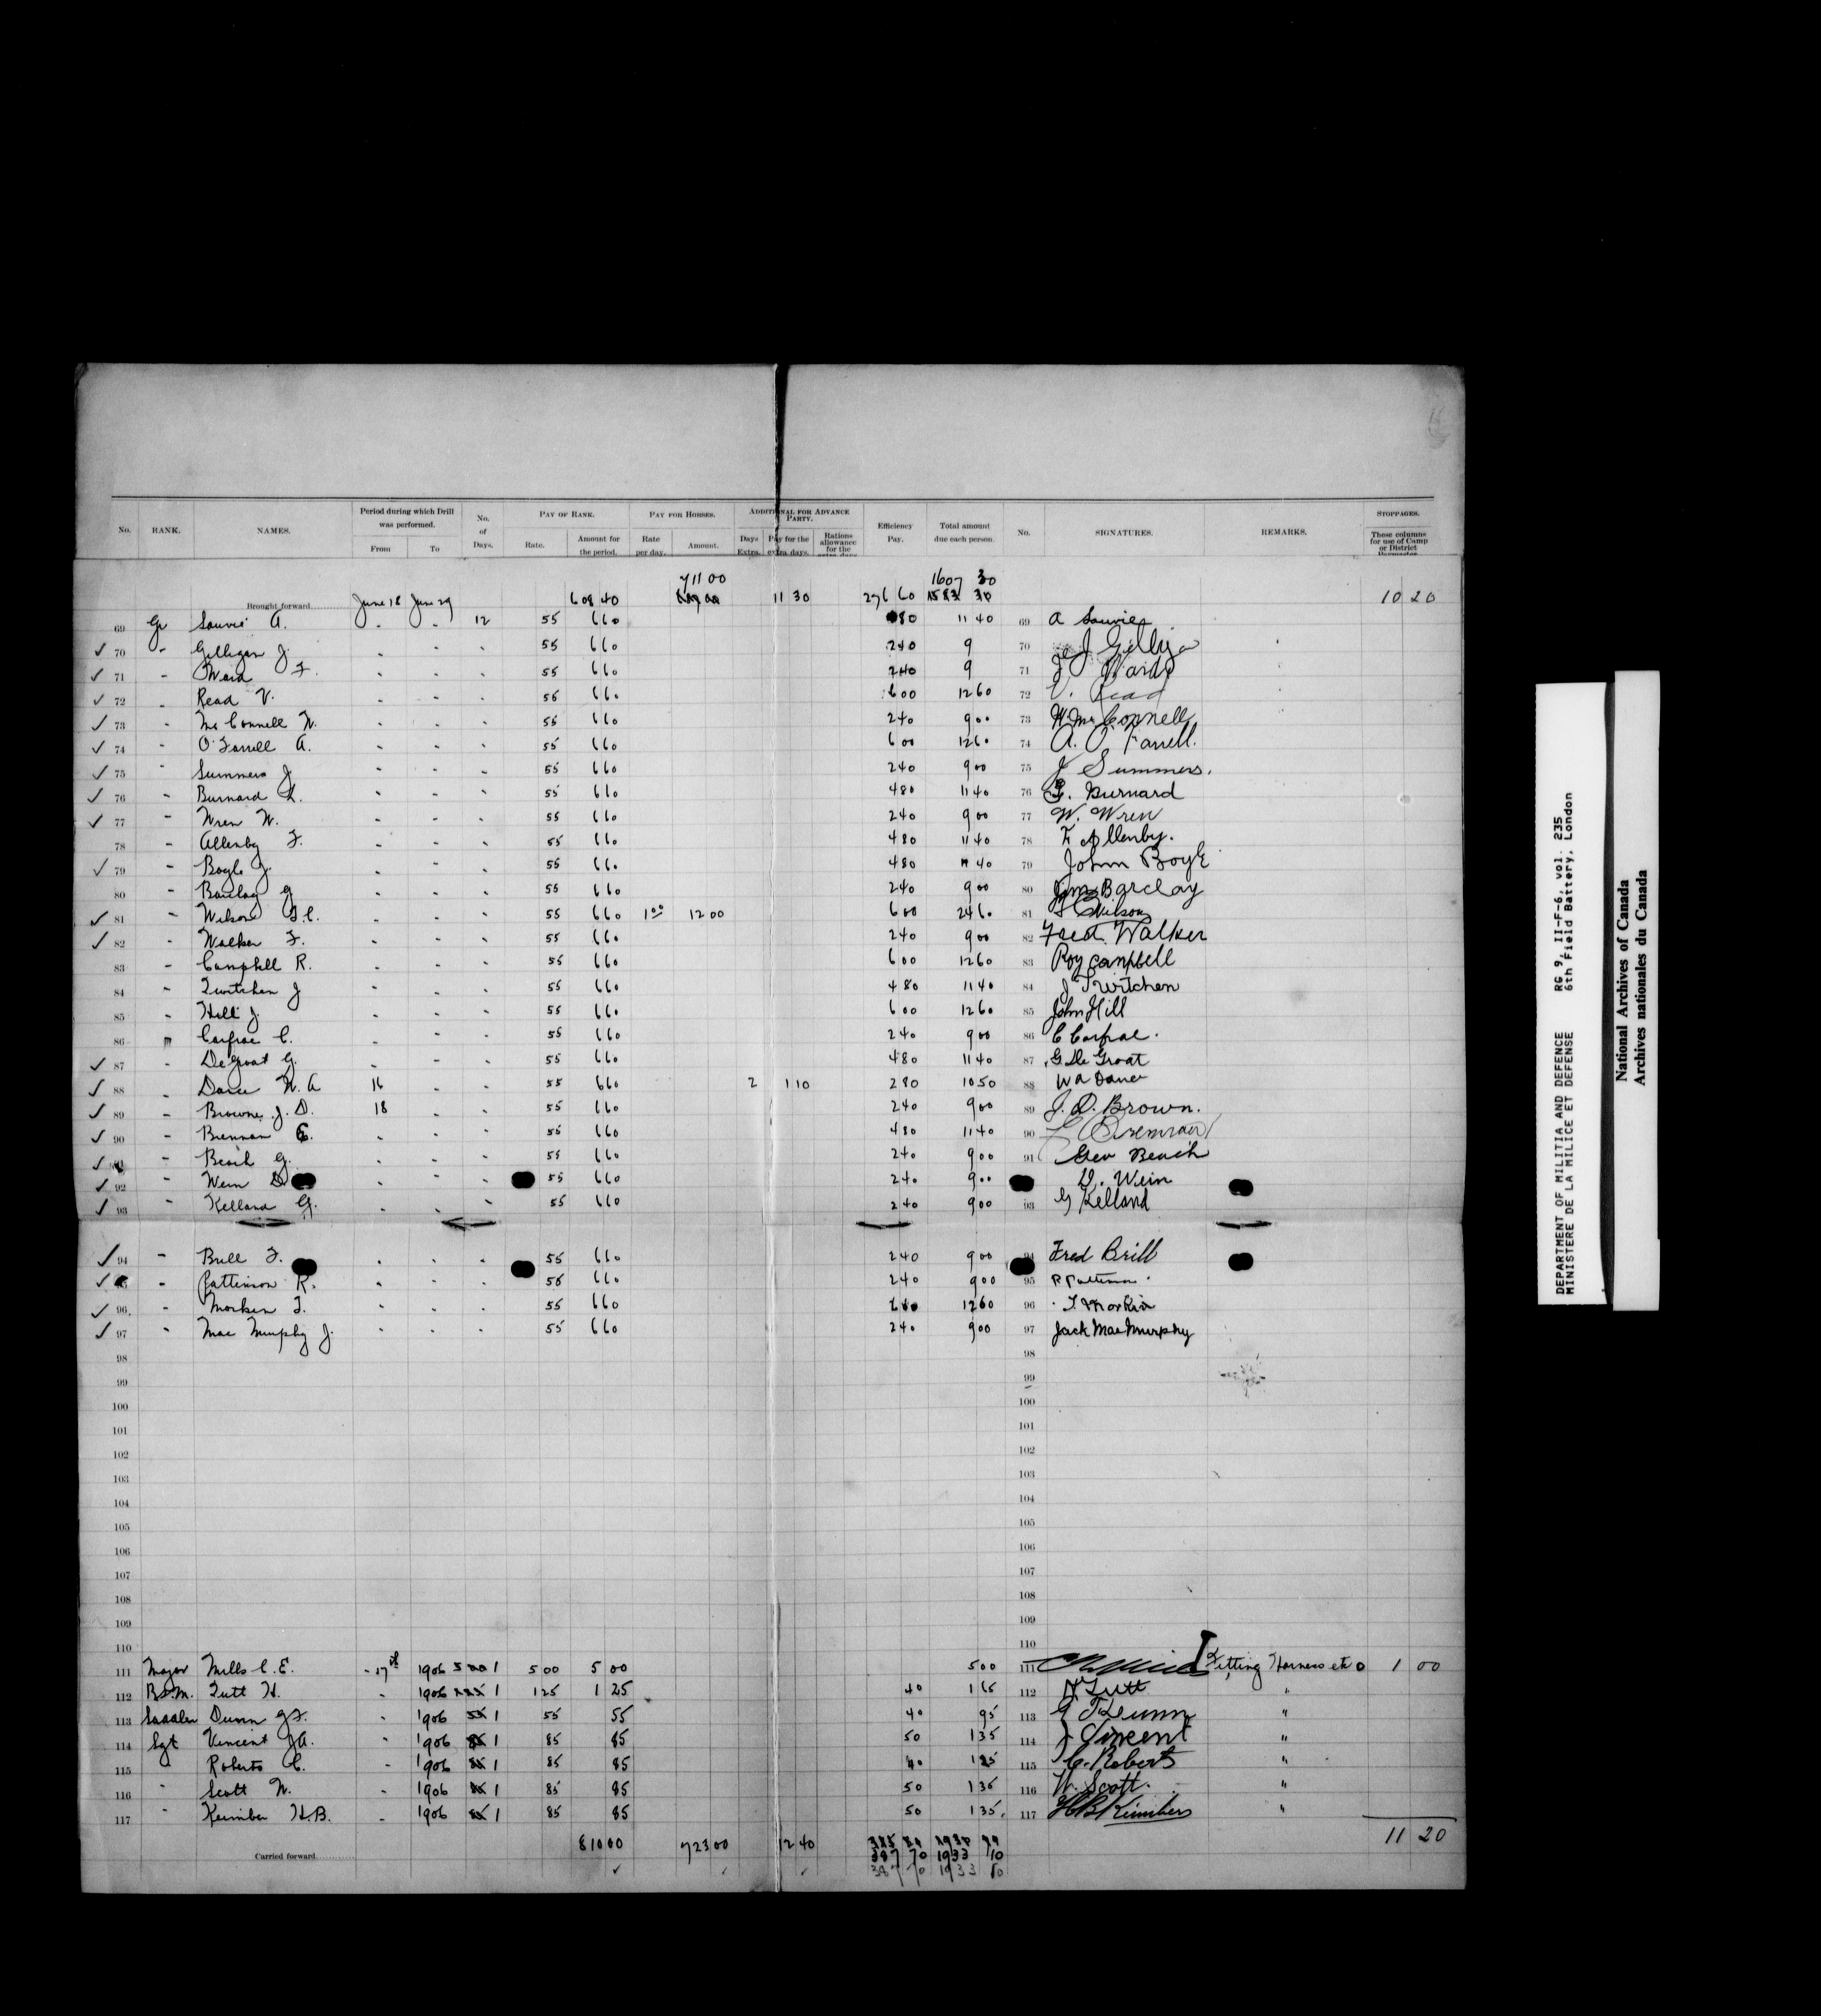 No. RANK. NAMES. Period during which Drill was performed. From To No. of Days. PAY OF RANK. Rate. Amount for the period. PAY FOR HORSES. Rate per day. Amount. ADDITIONAL FOR ADVANCE PARTY. Days Extra. Pay for the extra days. Rations allowance for the extra days Efficiency Pay. Total amount due each person. No. SIGNATURES. REMARKS. STOPPAGES. These columns for use of Camp or District Paymaster
711 00 1607 30
Brought forward June 18 June 29 608 40 11 30 276 60 1583 30 10 20
69 Gr A. - - 12 55 6 60 80 11 40 69 A
✓ 70 - Gilligan J. - - - 55 6 60 2 40 9 70 J Gilligan
✓ 71 - Ward F. - - - 55 6 60 2 40 9 71 Ward
✓ 72 - Read V. - - - 55 6 60 6 00 12 60 72 V. Read
✓ 73 - McConnell W. - - - 55 6 60 2 40 9 00 73 W. McConnell
✓ 74 - O'Farrell A. - - - 55 6 60 6 00 12 60 74 A. O'Farrell.
✓ 75 - Summers J - - - 55 6 60 2 40 9 00 75 J Summers.
✓ 76 - Burnard - - - 55 6 60 4 80 11 40 76 Burnard
✓ 77 - Wren W. - - - 55 6 60 2 40 9 00 77 W. Wren
78 - Allenby F. - - - 55 6 60 4 80 11 40 78 F Allenby.
✓ 79 - Boyle J. - - 55 6 60 4 80 11 40 79 John Boyle
80 - Barclay J - - - 55 6 60 2 40 9 00 80 Jim Barclay
✓ 81 - Wilson F.C. - - - 55 6 60 1 00 12 00 6 00 24 60 81 F C Wilson
✓ 82 - Walker F. - - - 55 6 60 2 40 9 00 82 Fred. Walker
83 - Campbell R. - - - 55 6 60 6 00 12 60 83 Roy Campbell
84 - Twitchen J - - - 55 6 60 4 80 11 40 84 J Twitchen
85 - Hill J. - - - 55 6 60 6 00 12 60 85 John Hill
86 Carfrae C. - - - 55 6 60 2 40 9 00 86 C Carfrae.
✓ 87 - DeGroat G. - - - 55 6 60 4 80 11 40 87 G De Groat
✓ 88 - Dance W. A 16 - - 55 6 60 2 1 10 2 80 10 50 88 W A Dance
✓ 89 - Browne J. D. 18 - - 55 6 60 2 40 9 00 89 J. D. Brown.
✓ 90 - Brennan - - - 55 6 60 4 80 11 40 90 Brennan
✓ 91 - Beach G. - - - 55 6 60 2 40 9 00 91 Geo Beach
✓ 92 - Wein D - - 55 6 60 2 40 9 00 D. Wein
✓ 93 - Kelland G. - - - 55 6 60 2 40 9 00 93 G Kelland
✓ 94 - F. - - - 55 6 60 2 40 9 00 94 Fred Brill
✓ - Pattinson R. - - - 55 6 60 2 40 9 00 95 R Pattinson.
✓ 96. - Morkin T. - - - 55 6 60 6 00 12 60 96 T Morkin
✓ 97 - Mac Murphy J. - - - 55 6 60 2 40 9 00 97 Jack MacMurphy
98 98
99 99
100 100
101 101
102 102
103 103
104 104
105 105
106 106
107 107
108 108
109 109
110 110
111 Major Mills C. E. - 17th 1906 1 5 00 5 00 5 00 111 Fitting Harness etc 1 00
112 B.S.M. Tutt H. - 1906 1 1 25 1 25 40 1 65 112 H Tutt "
113 Saddler Dunn G F. - 1906 55 1 55 55 40 95 113 G F Dunn "
114 Sgt Vincent J A. - 1906 85 1 85 85 50 1 35 114 J Vincent "
115 " Roberts C. - 1906 85 1 85 85 40 1 25 115 C. Roberts "
116 " Scott W. - 1906 85 1 85 85 50 1 35 116 W. Scott. "
117 " Kimber H.B. - 1906 85 1 85 85 50 1 35. 117 H B Kimber "
Carried forward 810 00 723 00 12 40 11 20
387 70 1933 10
✓ ✓ ✓ 387 70 1933 10
DEPARTMENT OF MILITIA AND DEFENCE RG 9, II-F-6, vol. 235
MINISTERE DE LA MILICE ET DEFENSE 6th Field Battery, London
National Archives of Canada
Archives nationales du Canada